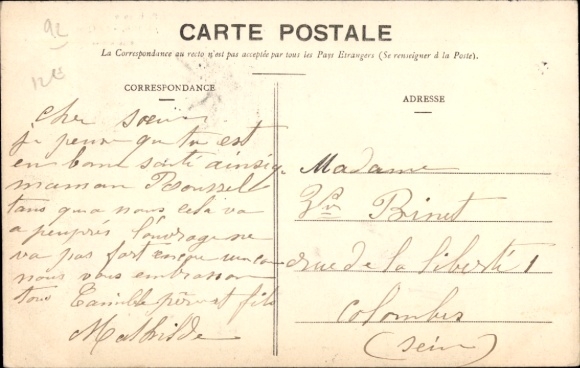 92
12€
CARTE POSTALE
La Correspondance au recto n'est pas acceptée par tous les Pays Etrangers (Se renseigner à la Poste).
CORRESPONDANCE
cher soeur
je pense que tu est
en bonne santé ainsi q.
maman Roussel
tans qua nous cela va
a peuprés l'ouvrage ne
va pas fort encore
nous vous embrasson
tous Camille père et fils
Mathilde
ADRESSE
Madame
Binet
rue de la liberté 1
Colombes
(Seine)